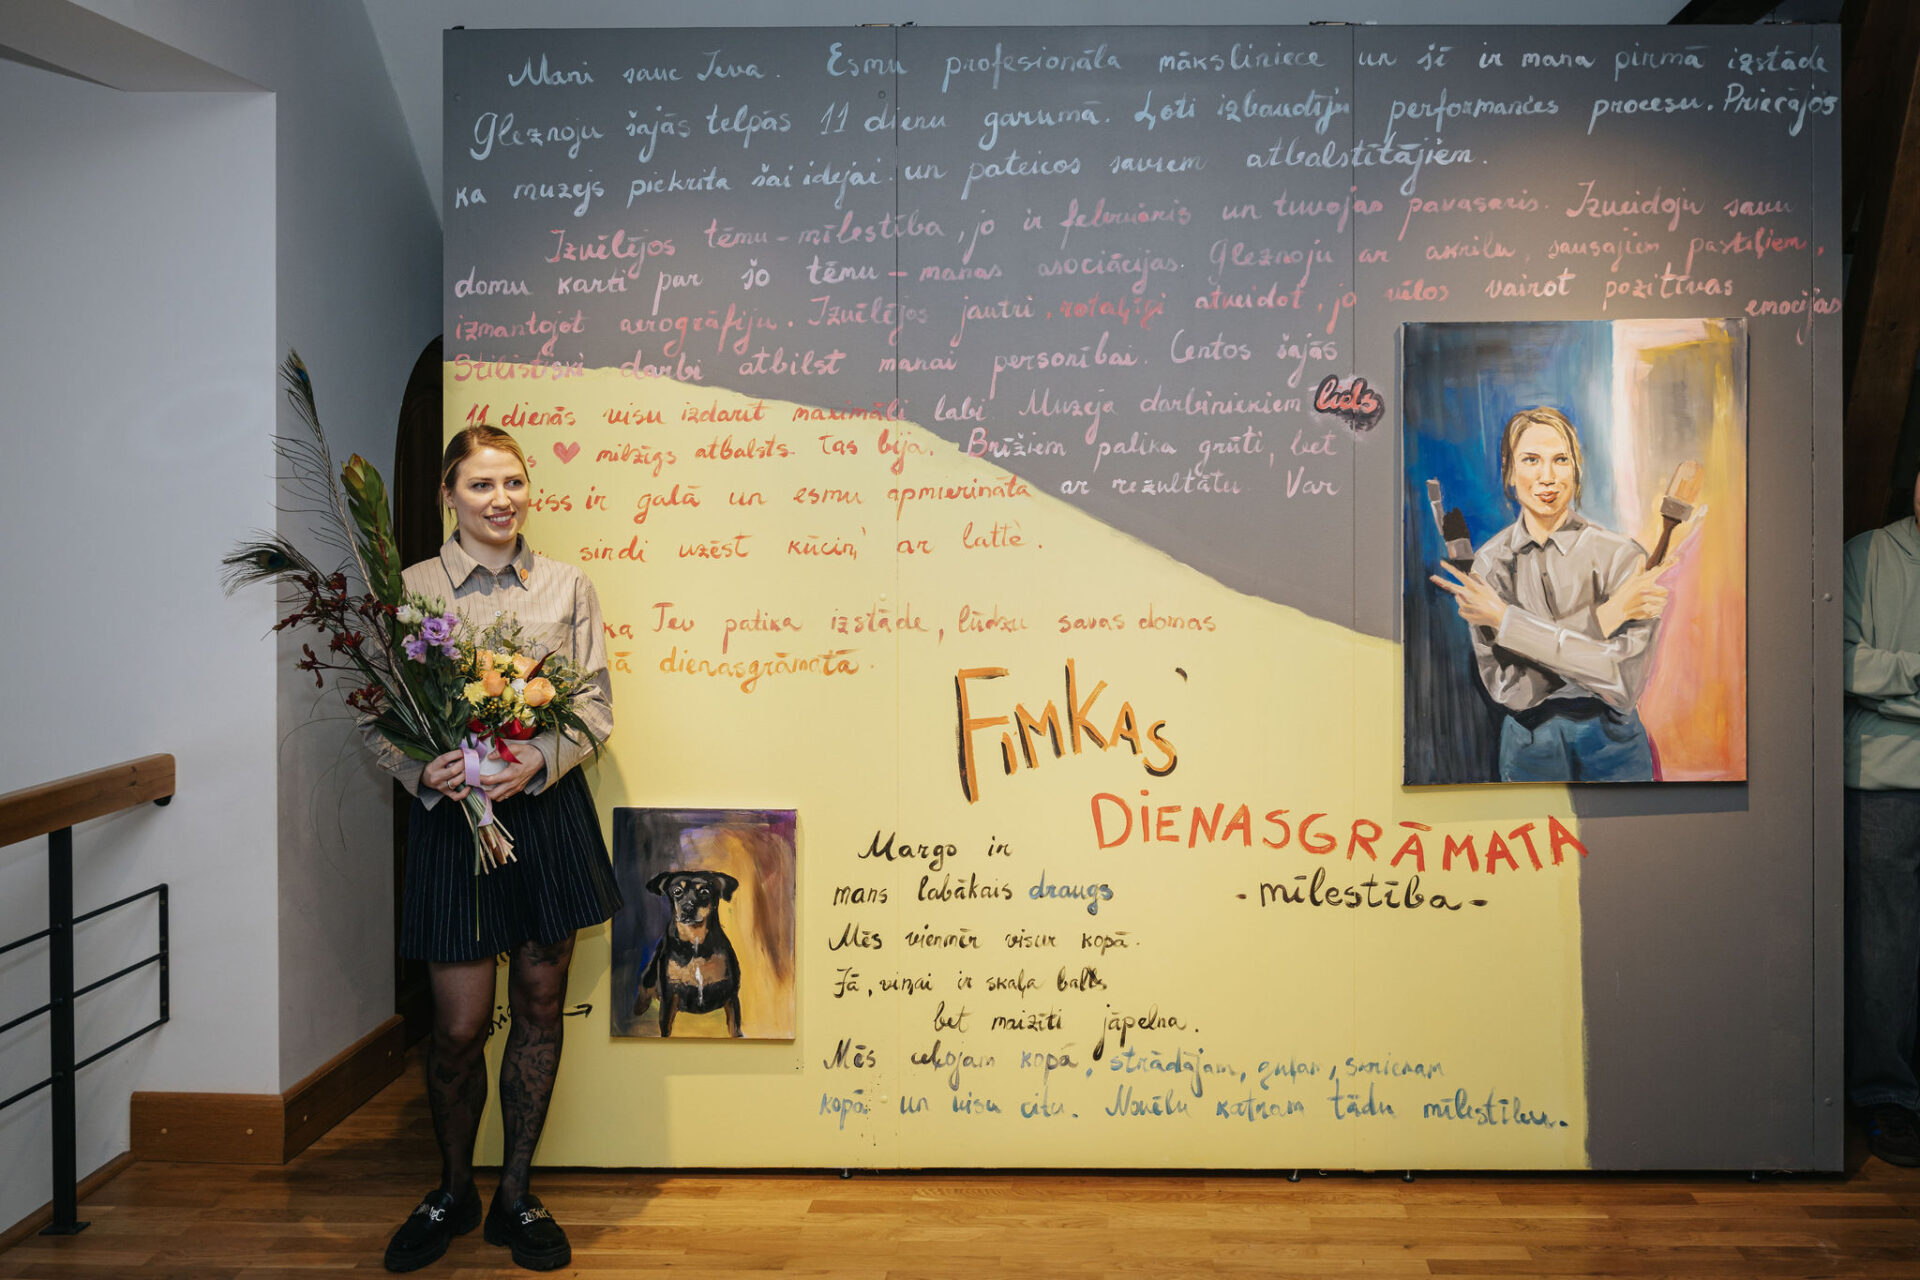 Mani sauc Ieva. Esmu profesionāla māksliniece un šī ir mana pirmā izstāde
Gleznoju šajās telpās 11 dienu garumā. Ļoti izbaudīju performances procesu. Priecājos
ka muzejs piekrita šai idejai un pateicos saviem atbalstītājiem.
Izvēlējos tēmu - mīlestība, jo ir februāris un tuvojas pavasaris. Izveidoju savu
domu karti par šo tēmu - manas asociācijas. Gleznoju ar akrilu, sausajiem pasteļiem,
izmantojot aerogrāfiju. Izvēlējos jautri, rotaļīgi atveidot, jo vēlos vairot pozitīvas emocijas
Stilistiski darbi atbilst manai personībai. Centos šajās
11 dienās visu izdarīt maksimāli labi Muzeja darbiniekiem liels
s ♥ milzīgs atbalsts. Tas bija. Brīžiem palika grūti, bet
viss ir galā un esmu apmierināta ar rezultātu. Var
sirdi uzēst kūciņ' ar lattè.
ka Tev patika izstāde, lūdzu savas domas
ā dienasgrāmatā.
FimKas'
DIENASGRĀMATA
- mīlestība -
Margo ir
mans labākais draugs
Mēs vienmēr visur kopā.
Jā, viņai ir skaļa balss
bet mazīti jāpelna.
Mēs ceļojam kopā, strādājam, guļam, smejam
kopā un visu citu. Novēlu katram tādu mīlestību.